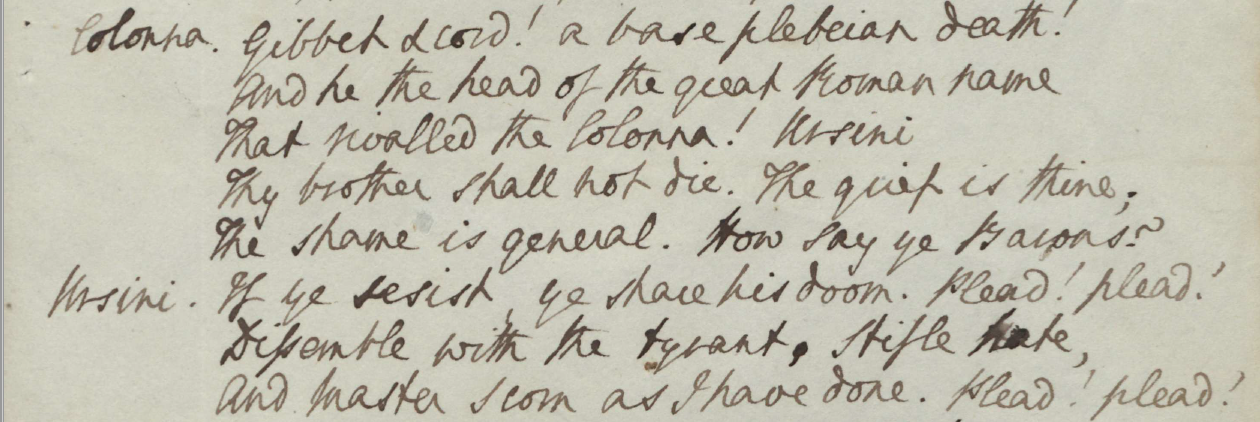 Colonna. Gibbet & cord! a base plebeian death!
And he the head of the great Roman name
That rivalled the Colonna! Ursini
Thy brother shall not die. The grief is thine;
The shame is general. How say ye Barons?
Ursini. If ye resist, ye share his doom. Plead! plead!
Dissemble with the tyrant, stifle hate,
And master scorn as I have done. Plead! plead!